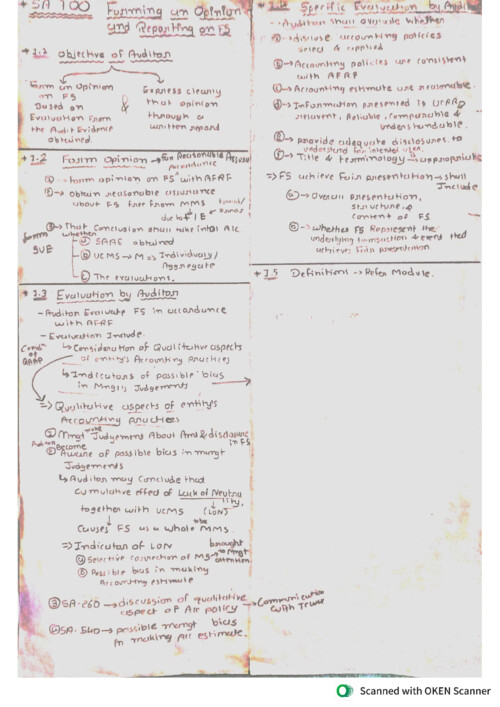 * SA 700 Forming an Opinion
and Reporting on FS
* 1.1 Objective of Auditor
Form an Opinion
on FS
Based on
Evaluation from
the Audit Evidence
obtained.
&
Express clearly
that opinion
through a
written report
* 1.2 Form Opinion → For Reasonable
① → form opinion on FS with AFRF
② → obtain reasonable assurance
about FS free from MMS
due to F/E
③ → That Conclusion shall take into A/c
whether
ⓐ SAAE obtained
ⓑ UCMS → M → Individually /
Aggregate
ⓒ The evaluations.
* 1.3 Evaluation by Auditor
- Auditor Evaluate FS in accordance
with AFRF
- Evaluation Include.
↳ Consideration of Qualitative aspects
of entity's Accounting Practices
↳ Indicators of possible bias
in Mngt's Judgements
⇒ Qualitative aspects of entity's
Accounting Practices
① Mngt Judgement About Amt & disclosure
in FS
② Auditor Become
Aware of possible bias in mngt
Judgements
↳ Auditor may Conclude that
Cumulative effect of Lack of Neutra
lity,
together with UCMS (LON)
Causes FS as a whole to be MMS.
⇒ Indicator of LON
ⓐ Selective correction of MS → brought to Mngt
attention
ⓑ Possible bias in making
Accounting estimate
③ SA-260 → discussion of qualitative
aspect of A/c policy → Communication
with TCWG
④ SA-540 → possible mngt bias
in making A/c estimate.
* 1.4 Specific Evaluation by Auditor
- Auditor shall evaluate whether
ⓐ → disclose accounting policies
select & applied
ⓑ → Accounting policies are consistent
with AFRF
ⓒ → Accounting estimate are reasonable.
ⓓ → Information presented is
relevant, Reliable, Comparable &
understandable.
ⓔ → provide adequate disclosures to
understand for intended users.
ⓕ → Title & terminology → appropriate
⇒ FS achieve Fair presentation → shall
Include
ⓐ → Overall presentation,
structure &
content of FS
ⓑ → whether FS Represent the
underlying transaction & event that
achieve Fair presentation
* 1.5 Definitions → Refer Module.
Scanned with OKEN Scanner